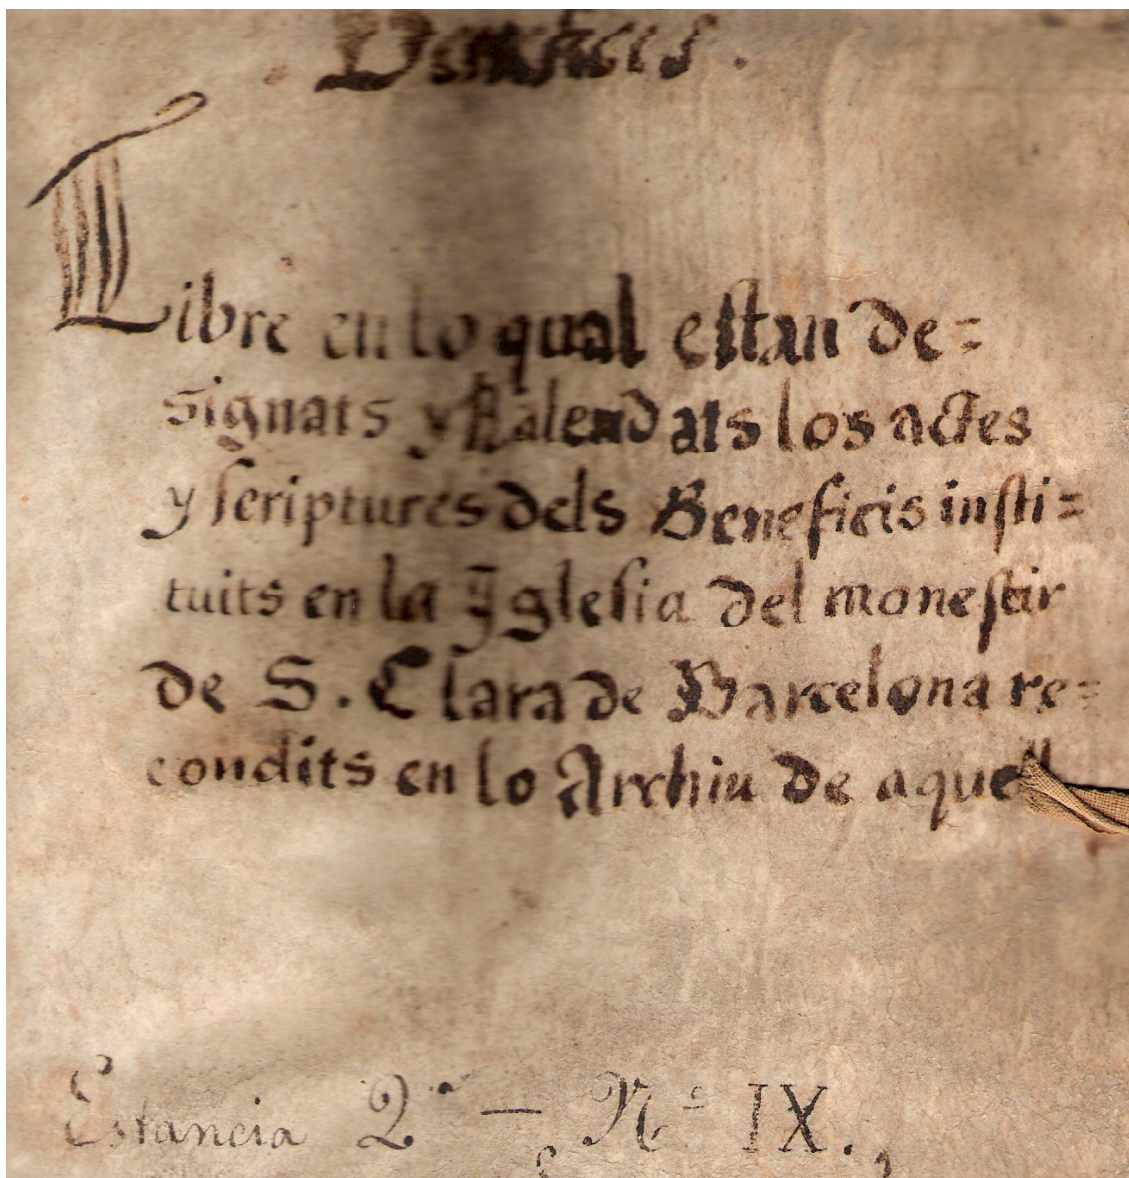 Libre en lo qual estan de=
signats y Kalendats los actes
y scriptures dels Beneficis insti=
tuits en la Yglesia del monestir
de S. Clara de Barcelona re=
condits en lo Archiu de aquell
Estancia 2ª — Nº IX.